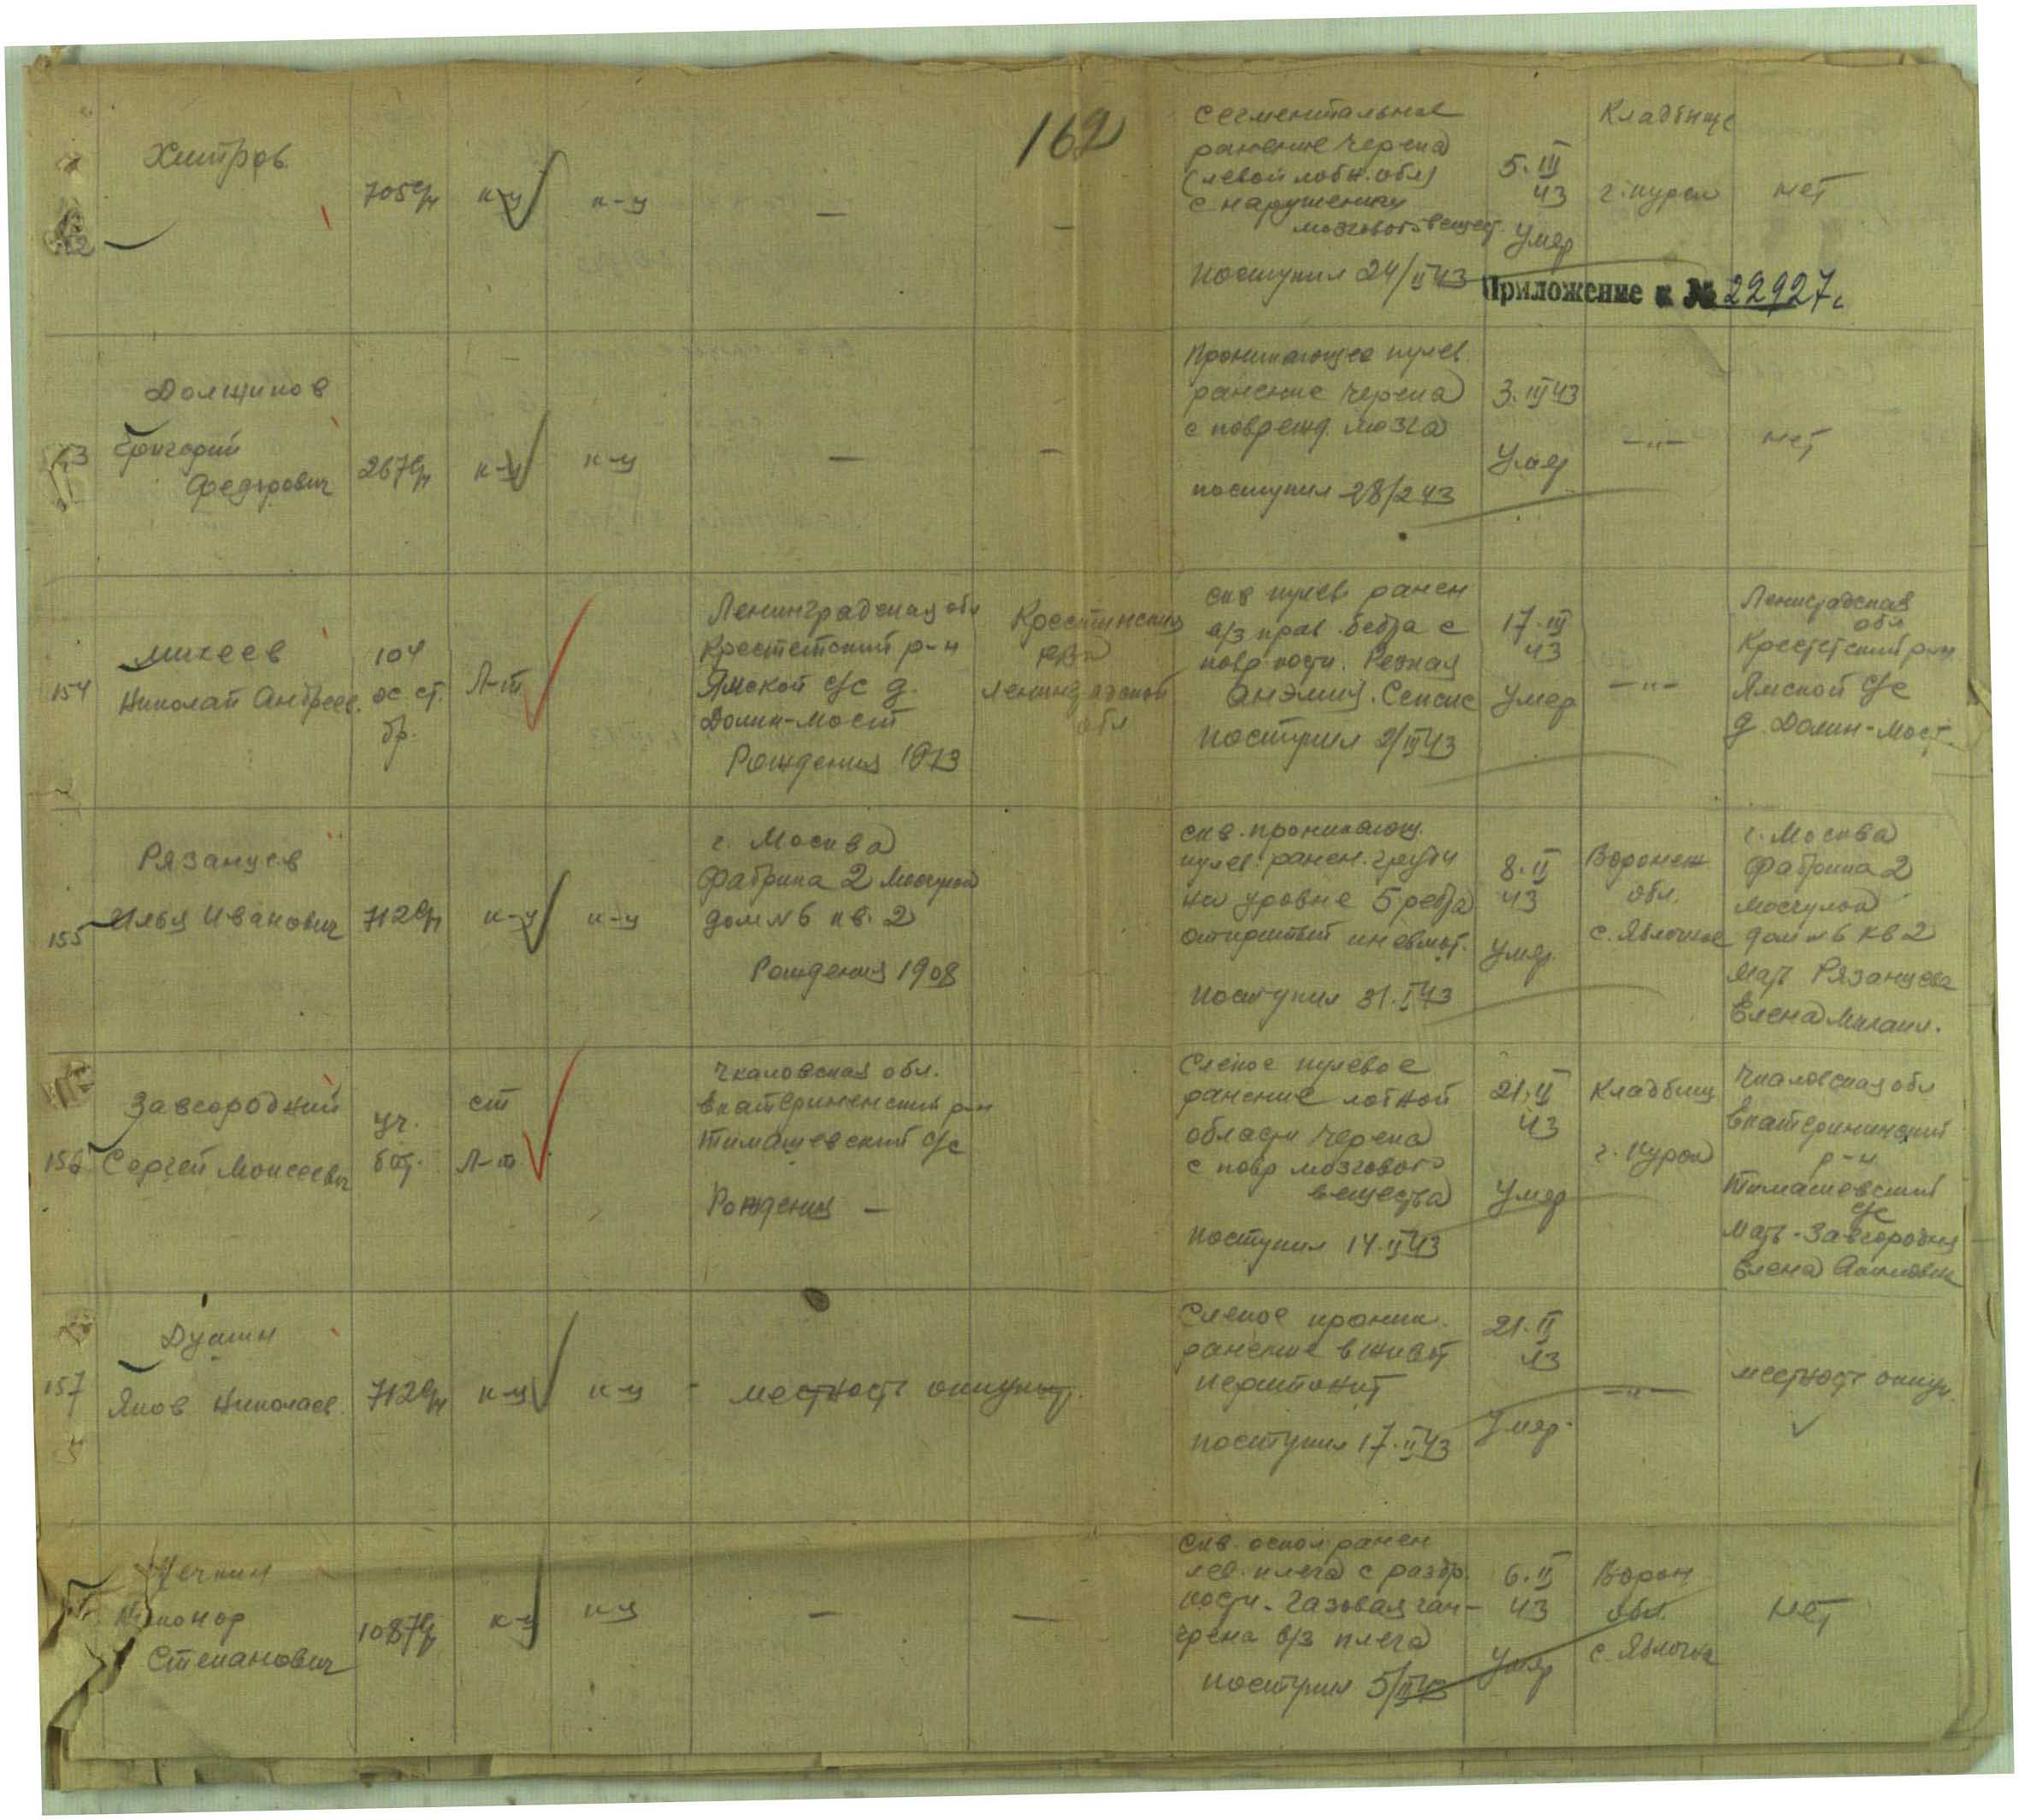 162
Хитров
705сп
к-ц
к-ц
—
—
Сегментальное
ранение черепа
(левой лобн. обл)
с нарушением
мозгового вещест.
поступил 24/II 43
5.III
43
Умер
Кладбище
г. Курск
нет
Приложение к № 22927с
Долщиков
Григорий
Федорович
267сп
к-ц
к-ц
—
—
Проникающее пулев.
ранение черепа
с поврежд. мозга
поступил 28/2 43
3.III 43
Умер
—„—
нет
154
Михеев
Николай Андреев.
104
ос. ст.
бр.
Л-т
Ленинградская обл
Крестетский р-н
Ямской с/с д.
Долин-мост
Рождения 1913
Крестинский
РВК
Ленинградской
обл
скв пулев ранен
в/з прав. бедра с
повр кости. Резкая
анэмия. Сепсис
поступил 2/III 43
17.III
43
Умер
—„—
Ленинградская
обл
Крестетский р-н
Ямской с/с
д. Долин-мост
155
Рязанцев
Илья Иванович
712сп
к-ц
к-ц
г. Москва
Фабрика 2
дом №6 кв. 2
Рождения 1908
скв. проникающ.
пулев. ранен. груди
на уровне 5 ребра
открытый пневмот.
поступил 31.I 43
8.II
43
Умер.
Воронеж
обл.
с. Яблочное
г. Москва
Фабрика 2
дом №6 кв 2
мать Рязанцева
Елена Михаил.
156
Завгородний
Сергей Моисеевич
уч.
бат.
ст
Л-т
Чкаловская обл.
Екатериненский р-н
Тимашевский с/с
Рождения —
Слепое пулевое
ранение лобной
области черепа
с повр мозгового
вещества
поступил 14.II 43
21.II
43
Умер
Кладбищ
г. Курск
Чкаловская обл
Екатерининский
р-н
Тимашевский
с/с
Мать - Завгородняя
Елена
157
Душин
Яков Николаев.
712сп
к-ц
к-ц
- местность оккупир.
Слепое проник.
ранение в живот
перитонит
поступил 17.II 43
21.II
43
Умер.
—„—
местность оккуп.
Нечкин
Никонор
Степанович
1087сп
к-ц
к-ц
—
—
скв. оскол ранен
лев. плеча с раздр.
кости. Газовая ган-
грена в/з плеча
поступил 5/II 43
6.II
43
Умер
Ворон
обл.
с. Яблочн
нет